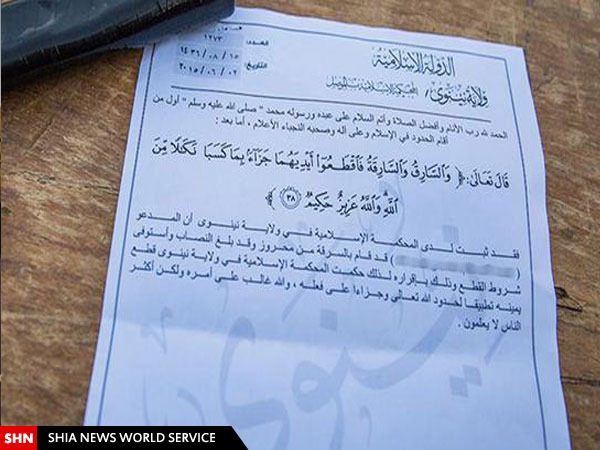 الدولة الإسلامية
ولاية نينوى / المحكمة الإسلامية بالموصل
العدد: ١٢٧٣
١٤٣٦/٠٨/١٥
التاريخ: ٢٠١٥/٠٦/٠٢
الحمد لله رب الأنام وأفضل الصلاة وأتم السلام على عبده ورسوله محمد "صلى الله عليه وسلم" أول من
أقام الحدود في الإسلام وعلى آله وصحبه النجباء الأعلام ، أما بعد :
قَالَ تَعَالَى: ﴿ وَالسَّارِقُ وَالسَّارِقَةُ فَاقْطَعُوا أَيْدِيَهُمَا جَزَاءً بِمَا كَسَبَا نَكَالًا مِّنَ
اللَّهِ وَاللَّهُ عَزِيزٌ حَكِيمٌ ﴿٣٨﴾
فقد ثبت لدى المحكمة الإسلامية في ولاية نينوى أن المدعو
) قد قام بالسرقة من محروز وقد بلغ النصاب وأستوفى
شروط القطع وذلك بإقراره لذلك حكمت المحكمة الإسلامية في ولاية نينوى قطع
يمينه تطبيقاً لحدود الله تعالى وجزاءاً على فعلته ، والله غالب على أمره ولكن أكثر
الناس لا يعلمون .
نينوى
SHN SHIA NEWS WORLD SERVICE